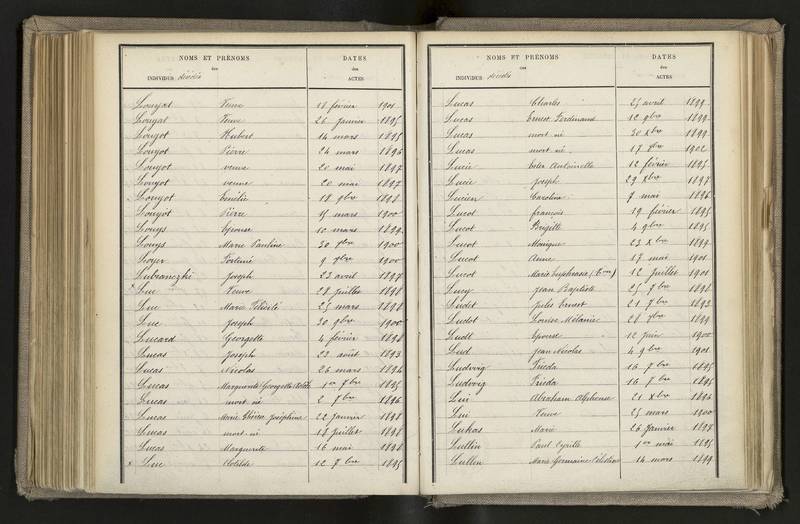 NOMS ET PRÉNOMS DATES
des des
INDIVIDUS décédés ACTES
Louyat Veuve 18 février 1901
Louyat Veuve 26 janvier 1895
Louyot Hubert 14 mars 1895
Louyot Pierre 24 mars 1896
Louyot veuve 20 mai 1897
Louyot veuve 20 mai 1897
Louyot Emélie 18 9bre 1898
Louyot Pierre 15 mars 1900
Louys Epouse 10 mars 1899
Louys Marie Pauline 30 9bre 1900
Loyer Fortuné 9 9bre 1900
Lubranczki Joseph 23 avril 1897
x Luc Veuve 28 juillet 1898
Luc Marie Félicité 25 mars 1898
Luc Joseph 30 9bre 1900
Lucard Georgette 4 février 1898
Lucas Joseph 23 août 1893
Lucas Nicolas 26 mars 1894
Lucas Marguerite Georgette 1er 7bre 1895
Lucas mort-né 2 7bre 1896
Lucas Marie Thérèse Joséphine 22 janvier 1898
Lucas mort-né 18 juillet 1898
Lucas Marguerite 16 mai 1898
x Luc Clotilde 12 7bre 1895
NOMS ET PRÉNOMS DATES
des des
INDIVIDUS décédés ACTES
Lucas Charles 25 avril 1899
Lucas Ernest Ferdinand 12 9bre 1899
Lucas mort né 30 Xbre 1899
Lucas mort né 17 7bre 1902
Lucie Antoinette 12 février 1895
Lucie Joseph 29 Xbre 1897
Lucien Caroline 7 mai 1896
Lucot François 19 février 1895
Lucot Brigitte 4 9bre 1895
Lucot Monique 23 Xbre 1899
Lucot Anne 17 mai 1901
Lucot Marie Euphrasie 12 juillet 1901
Lucy Jean Baptiste 25 7bre 1898
Ludet Jules Ernest 21 7bre 1893
Ludot Louise Mélanie 28 9bre 1899
Ludt Epouse 12 juin 1900
Lud Jean Nicolas 4 9bre 1901
Ludwig Frieda 16 7bre 1895
Ludwig Frieda 16 7bre 1895
Lui Abraham Alphonse 21 Xbre 1896
Lui Veuve 25 mars 1900
Lukas Marie 26 janvier 1898
Lullin Paul Cyrille 1er mai 1895
Lullin Marie Germaine Célestine 14 mars 1899